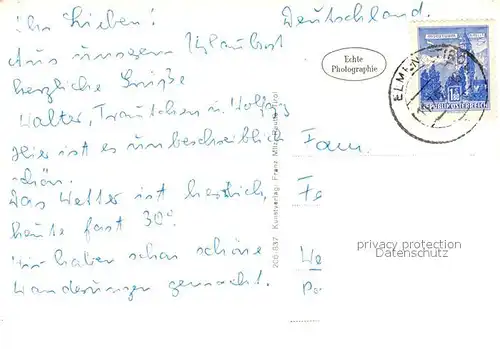 Ihr Lieben!
Aus unserem Urlaubsort
herzliche Grüße
Walter, Trautchen u. Wolfgang
Hier ist es unbeschreiblich
schön.
Das Wetter ist herrlich,
heute fast 30°.
Wir haben schon schöne
Wanderungen gemacht.
Deutschland.
Echte
Photographie
REPUBLIK ÖSTERREICH
Kunstverlag: Franz Milz, Reutte, Tirol
Fam.
privacy protection
Datenschutz